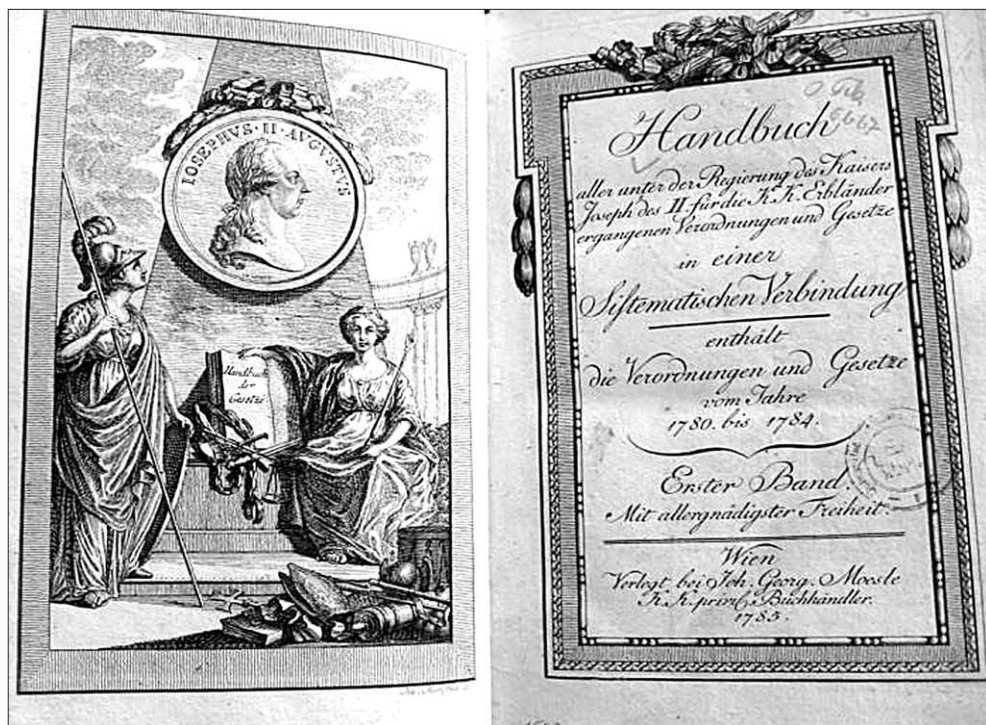 IOSEPHVS·II·AVGVSTVS
Handbuch
der
Gesetze
Handbuch
aller unter der Regierung des Kaisers
Joseph des II. für die K.K. Erbländer
ergangenen Verordnungen und Gesetze
in einer
Sistematischen Verbindung
enthält
die Verordnungen und Gesetze
vom Jahre
1780. bis 1784.
Erster Band.
Mit allergnädigster Freiheit.
Wien
Verlegt bei Joh. Georg. Moesle
K.K. privil. Buchhändler.
1785.